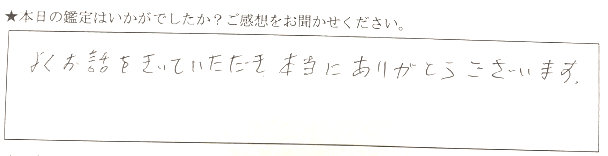 ★本日の鑑定はいかがでしたか？ご感想をお聞かせください。
よくお話をきいていただき本当にありがとうございます。